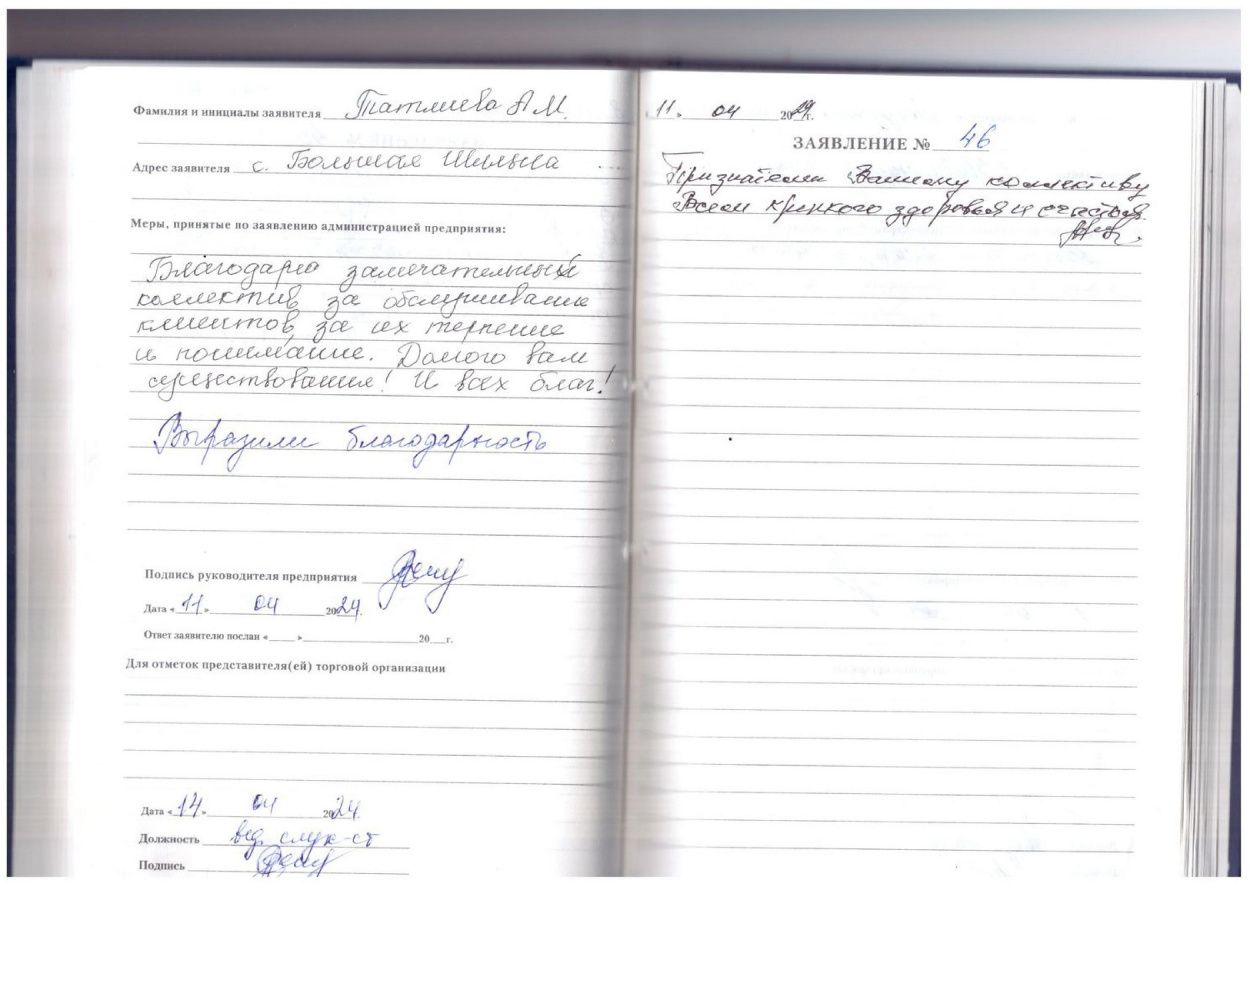 Фамилия и инициалы заявителя Татлиева А М.
Адрес заявителя с. Большая Шильна
Меры, принятые по заявлению администрацией предприятия:
Благодарю замечательный
коллектив за обслуживание
клиентов, за их терпение
и понимание. Долгого вам
существования! И всех благ!
Выразили благодарность
Подпись руководителя предприятия
Дата «11» 04 2024г.
Ответ заявителю послан «___» 20__г.
Для отметок представителя(ей) торговой организации
Дата «14» 04 2024.
Должность вед. слух-ст
Подпись
11» 04 2024г.
ЗАЯВЛЕНИЕ № 46
Признательны Вашему коллективу
Всем крепкого здоровья и счастья.